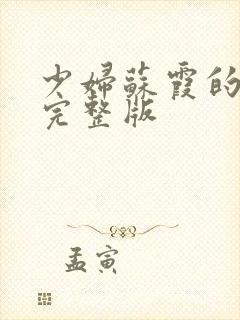 少婦蘇霞的
完整版
孟寅